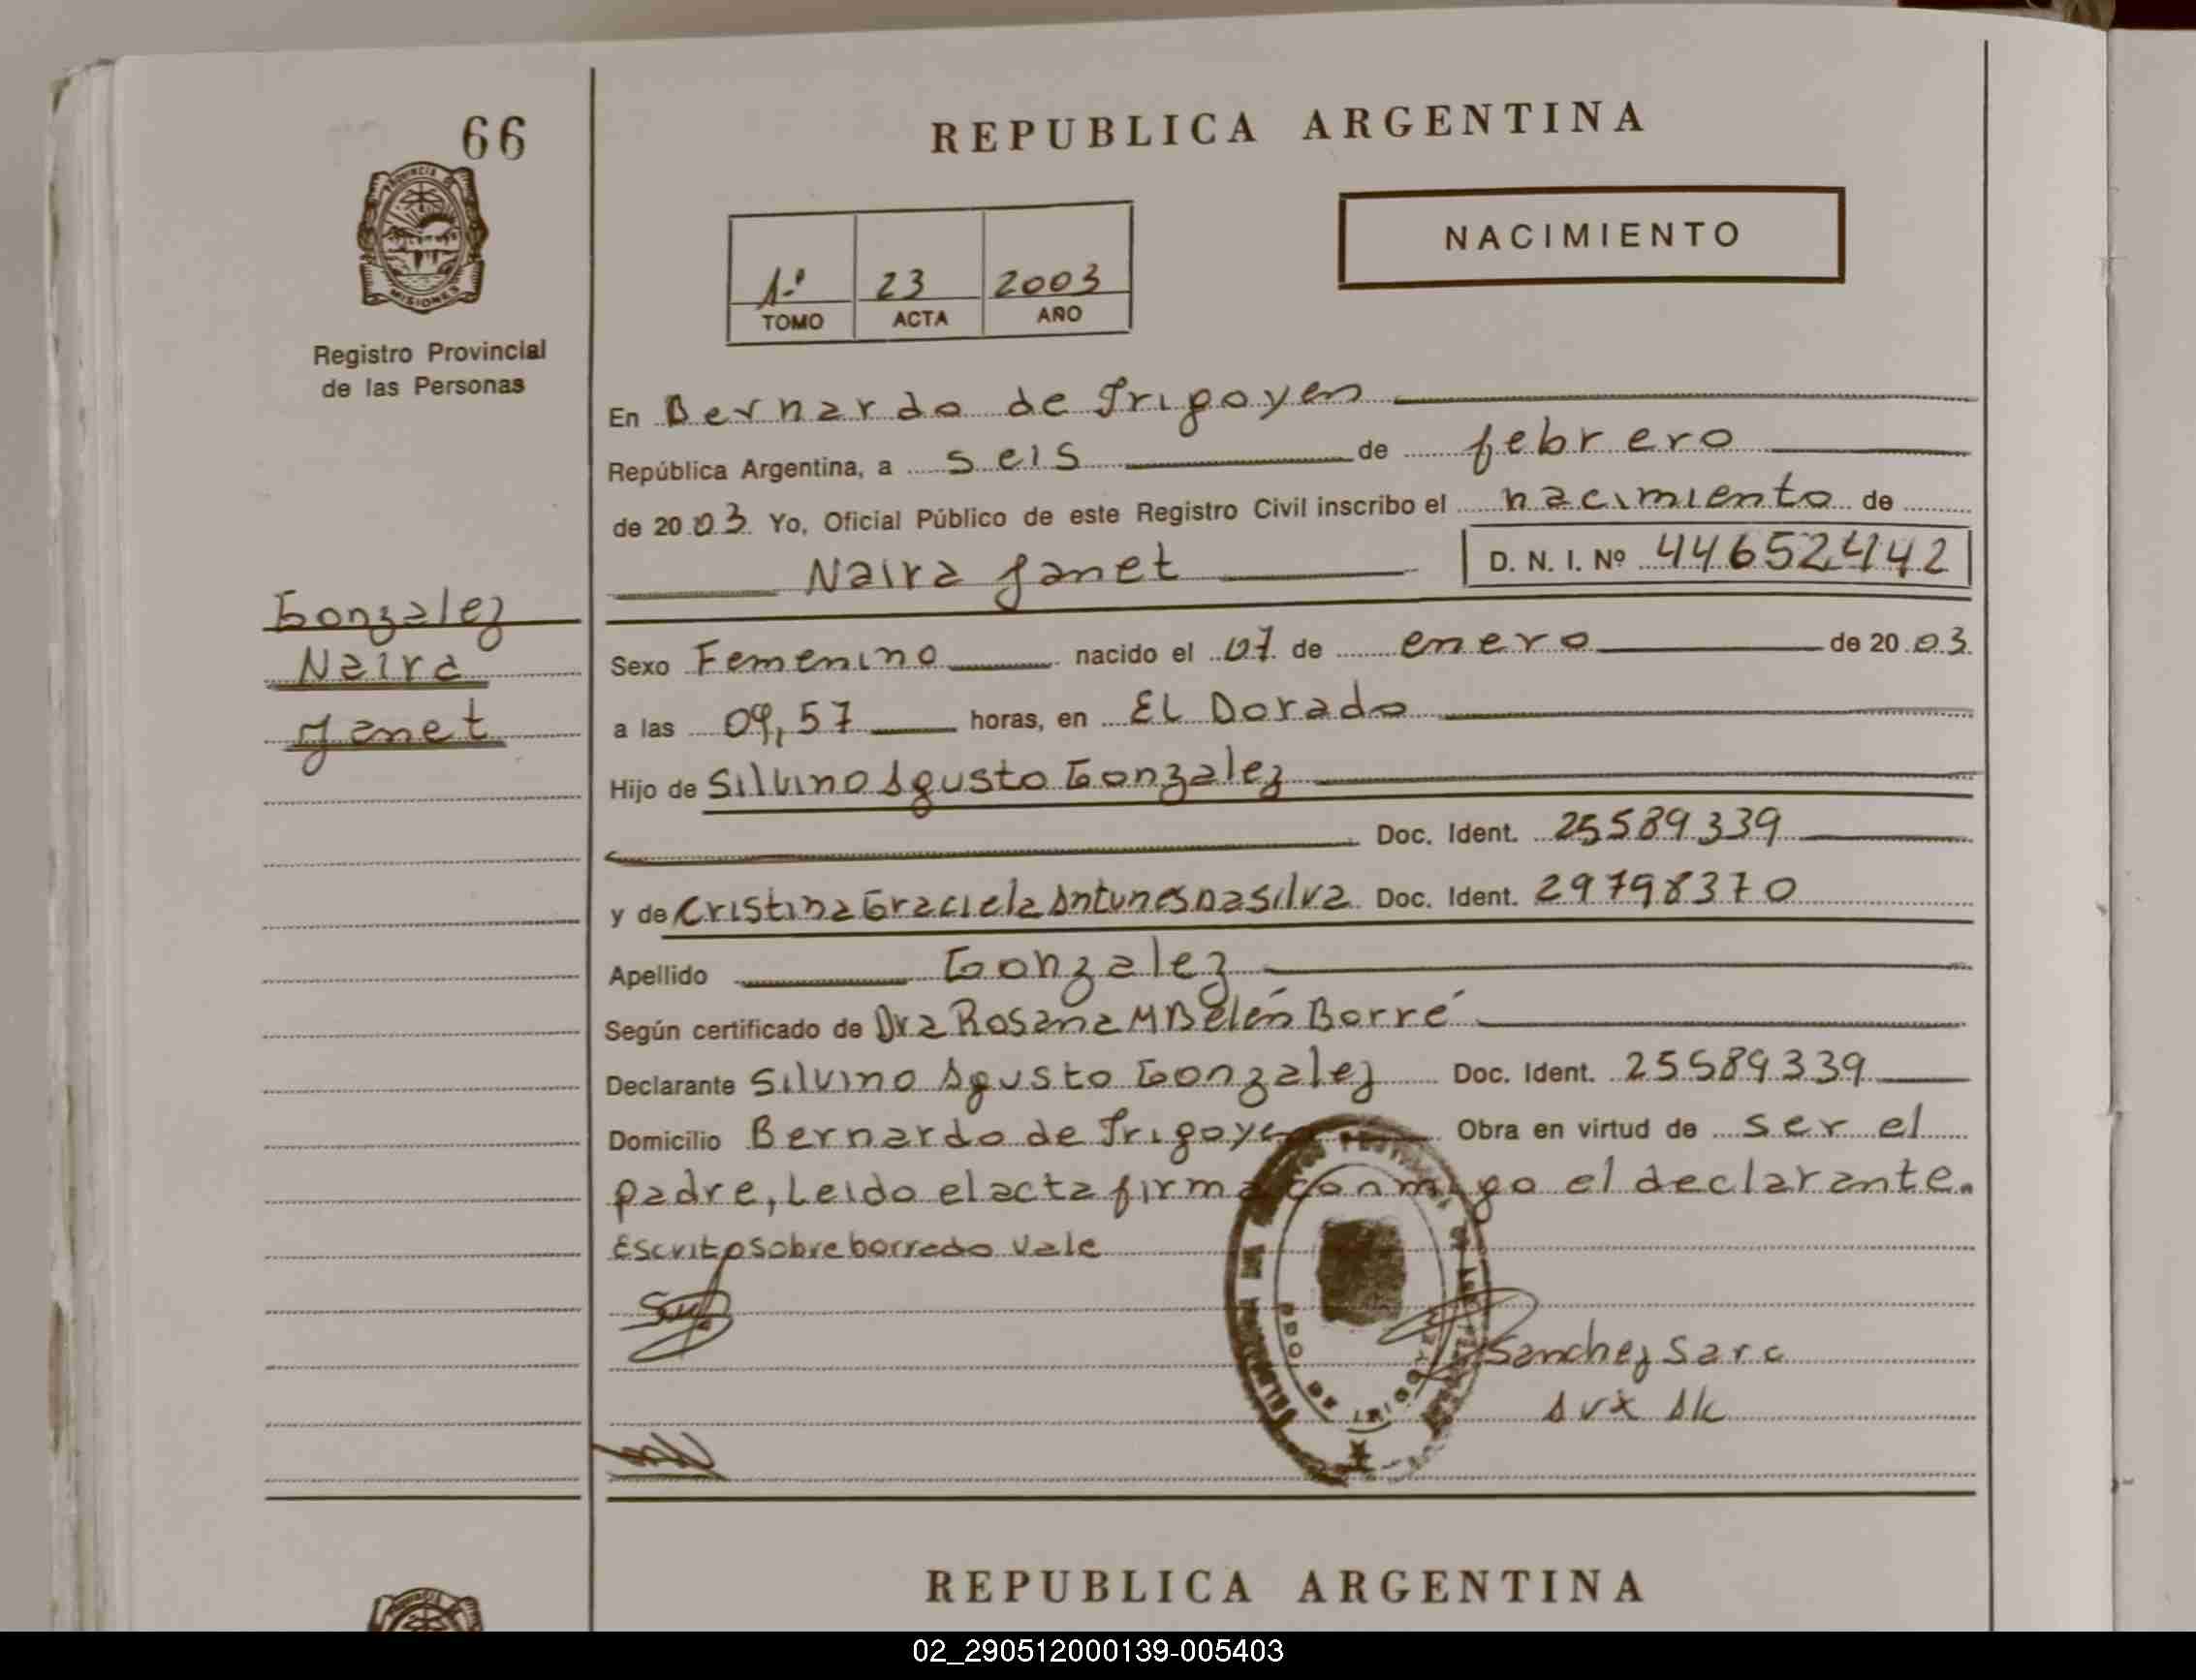 66
REPUBLICA ARGENTINA
NACIMIENTO
1º 23 2003
TOMO ACTA AÑO
PROVINCIA DE
MISIONES
Registro Provincial
de las Personas
En Bernardo de Irigoyen
República Argentina, a seis de febrero
de 2003 Yo, Oficial Público de este Registro Civil inscribo el nacimiento de
Naira Janet D. N. I. Nº 44652442
Gonzalez
Naira
Janet
Sexo Femenino nacido el 07 de enero de 2003
a las 09,57 horas, en EL Dorado
Hijo de Silvino Agusto Gonzalez
Doc. Ident. 25589339
y de Cristina Graciela Antunes Da silva Doc. Ident. 29798370
Apellido Gonzalez
Según certificado de Dra Rosana M Belén Borré
Declarante Silvino Agusto Gonzalez Doc. Ident. 25589339
Domicilio Bernardo de Irigoyen Obra en virtud de ser el
padre, Leido el acta firma conmigo el declarante.
Escrito sobre borrado Vale
Sanchez Sara
REPUBLICA ARGENTINA
02_290512000139-005403